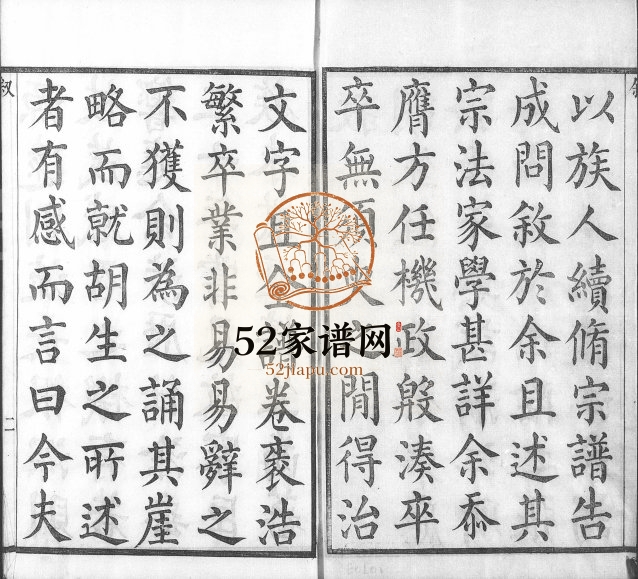 以族人續脩宗譜告
成問敘於余且述其
宗法家學甚詳余忝
膺方任機政殷湊卒
卒無閒得治
文字且全譜卷袠浩
繁卒業非易易辭之
不獲則為之誦其崖
略而就胡生之所述
者有感而言曰今夫
二
52家谱网
52jiapu.com